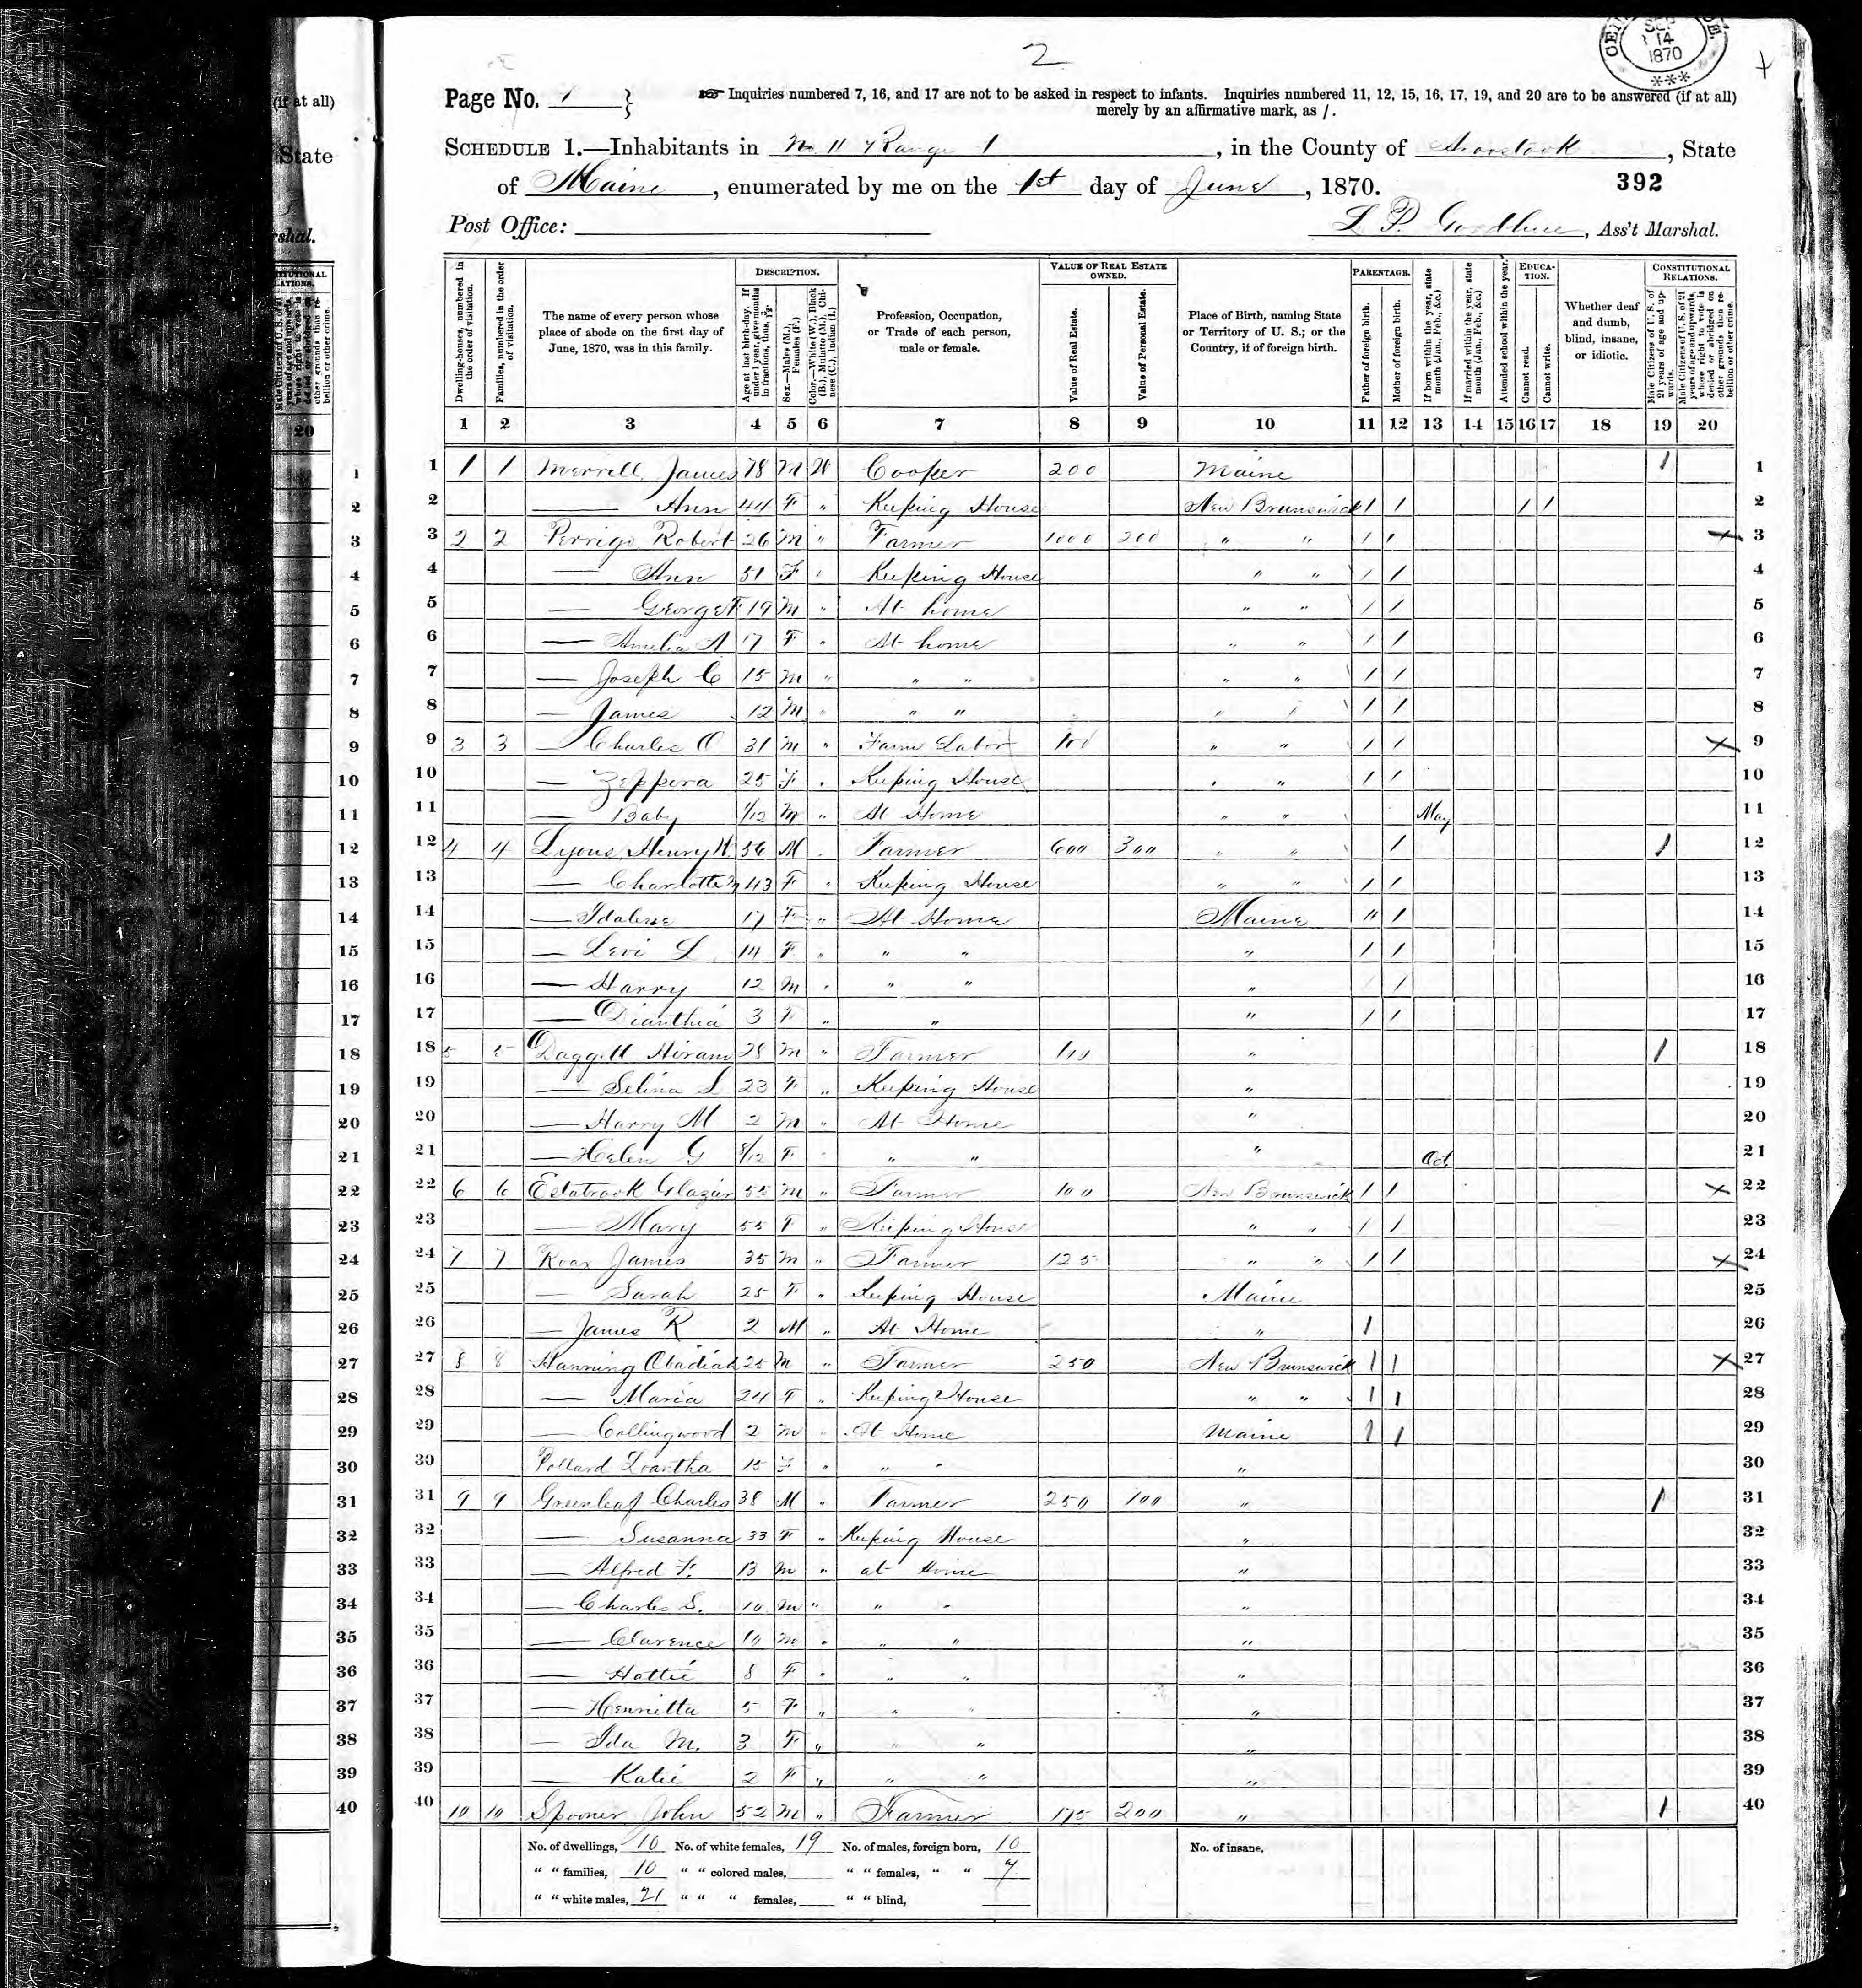 2
CE
SEP
14
1870
***
(if at all)
State
shal.
20
Page No. 1 } Inquiries numbered 7, 16, and 17 are not to be asked in respect to infants. Inquiries numbered 11, 12, 15, 16, 17, 19, and 20 are to be answered (if at all)
merely by an affirmative mark, as /.
SCHEDULE 1.—Inhabitants in No 11 Range 1, in the County of Aroostook, State
of Maine, enumerated by me on the 1st day of June, 1870. 392
Post Office: L P Goodhue, Ass't Marshal.
Dwelling-houses, numbered in the order of visitation.
Families, numbered in the order of visitation.
The name of every person whose place of abode on the first day of June, 1870, was in this family.
DESCRIPTION.
Age at last birth-day. If under 1 year, give months in fractions, thus, 3/12.
Sex.—Males (M.), Females (F.)
Color.—White (W.), Black (B.), Mulatto (M.), Chinese (C.), Indian (I.)
Profession, Occupation, or Trade of each person, male or female.
VALUE OF REAL ESTATE OWNED.
Value of Real Estate.
Value of Personal Estate.
Place of Birth, naming State or Territory of U. S.; or the Country, if of foreign birth.
PARENTAGE.
Father of foreign birth.
Mother of foreign birth.
If born within the year, state month (Jan., Feb., &c.)
If married within the year, state month (Jan., Feb., &c.)
Attended school within the year.
EDUCATION.
Cannot read.
Cannot write.
Whether deaf and dumb, blind, insane, or idiotic.
CONSTITUTIONAL RELATIONS.
Male Citizens of U. S. of 21 years of age and upwards.
Male Citizens of U. S. of 21 years of age and upwards, whose right to vote is denied or abridged on other grounds than rebellion or other crime.
1 2 3 4 5 6 7 8 9 10 11 12 13 14 15 16 17 18 19 20
1 1 1 Merrell, James 78 M W Cooper 200 Maine 1 1
2 — Ann 44 F " Keeping House New Brunswick / / / / 2
3 2 2 Perrigo Robert 26 M " Farmer 1000 200 " " / / x 3
4 — Ann 51 F " Keeping House " " / / 4
5 — George F 19 M " At home " " / / 5
6 — Amelia A 17 F " At home " " / / 6
7 — Joseph C 15 M " " " " " / / 7
8 — James 12 M " " " " " / / 8
9 3 3 — Charles O 31 M " Farm Labor 100 " " / / x 9
10 — Zeppora 25 F " Keeping House " " / / 10
11 — Baby 1/12 M " At Home " " May 11
12 4 4 Lyons Henry W. 56 M " Farmer 600 300 " " / 1 12
13 — Charlotte M 43 F " Keeping House " " / / 13
14 — Idalene 17 F " At Home Maine " / 14
15 — Levi L 14 F " " " " / / 15
16 — Harry 12 M " " " " / / 16
17 — Dianthia 3 F " " " / / 17
18 5 5 Daggett Hiram 28 M " Farmer 100 " 1 18
19 — Selina S 23 F " Keeping House " 19
20 — Harry M 2 M " At Home " 20
21 — Helen G 8/12 F " " " " Oct 21
22 6 6 Estabrook Glazier 55 M " Farmer 100 New Brunswick / / x 22
23 — Mary 55 F " Keeping House " " / / 23
24 7 7 Roar James 35 M " Farmer 125 " " / / x 24
25 — Sarah 25 F " Keeping House Maine 25
26 — James R 2 M " At Home " 1 26
27 8 8 Hanning Obadiah 25 M " Farmer 250 New Brunswick 1 1 x 27
28 — Maria 24 F " Keeping House " " 1 1 28
29 — Collingwood 2 M " At Home Maine 1 1 29
30 Pollard 15 F " " " " 30
31 9 9 Greenleaf Charles 38 M " Farmer 250 100 " 1 31
32 — Susanna 33 F " Keeping House " 32
33 — Alfred F. 13 M " at Home " 33
34 — Charles S. 10 M " " " " 34
35 — Clarence 10 M " " " " 35
36 — Hattie 8 F " " " " 36
37 — Henrietta 5 F " " " " 37
38 — Ida M. 3 F " " " " 38
39 — Katie 2 F " " " " 39
40 10 10 Spooner John 52 M " Farmer 175 200 " 1 40
No. of dwellings, 10 No. of white females, 19 No. of males, foreign born, 10 No. of insane,
" " families, 10 " " colored males, " " females, " " 7
" " white males, 21 " " " females, " " blind,